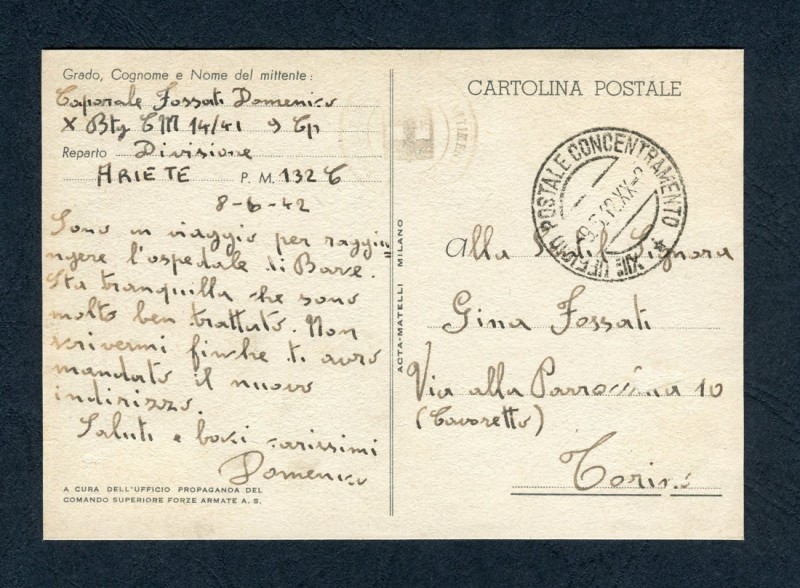 Grado, Cognome e Nome del mittente:
Caporale Fossati Domenico
X Btg CM 14/41 9 Cp
Reparto Divisione
ARIETE P. M. 132 C
8-6-42
Sono in viaggio per raggiu
ngere l'ospedale di Barce.
Sta tranquilla che sono
molto ben trattato. Non
scrivermi finche ti avro
mandato il nuovo
indirizzo.
Saluti e baci carissimi
Domenico
A CURA DELL'UFFICIO PROPAGANDA DEL
COMANDO SUPERIORE FORZE ARMATE A. S.
ACTA-MATELLI MILANO
CARTOLINA POSTALE
XII° UFFICIO POSTALE CONCENTRAMENTO
Alla Signora
Gina Fossati
Via alla 10
(Cavoretto)
Torino